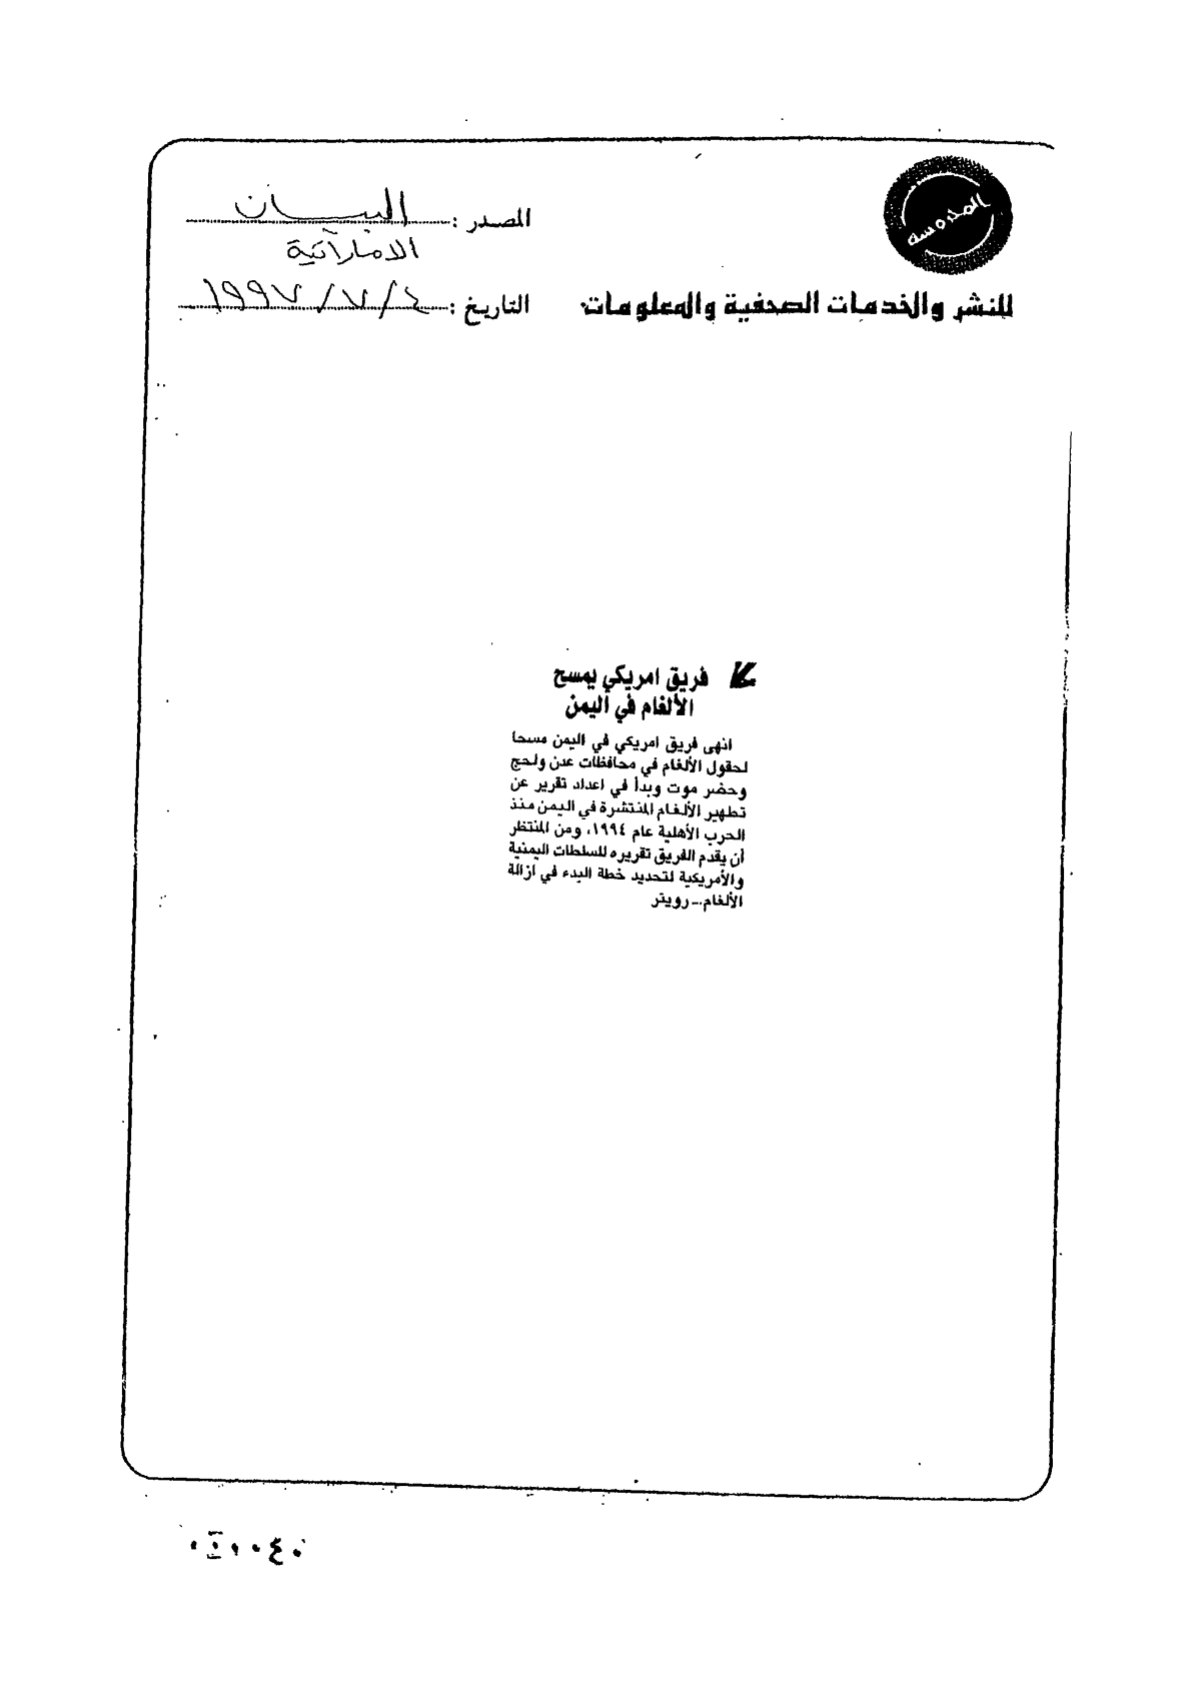 المحروسة
للنشر والخدمات الصحفية والمعلومات
المصدر : البيان
الاماراتية
التاريخ : ٤/٧/١٩٩٧
فريق امريكي يمسح
الألغام في اليمن
انهى فريق امريكي في اليمن مسحا
لحقول الألغام في محافظات عدن ولحج
وحضر موت وبدأ في اعداد تقرير عن
تطهير الألغام المنتشرة في اليمن منذ
الحرب الأهلية عام ١٩٩٤، ومن المنتظر
أن يقدم الفريق تقريره للسلطات اليمنية
والأمريكية لتحديد خطة البدء في ازالة
الألغام.ـ رويتر